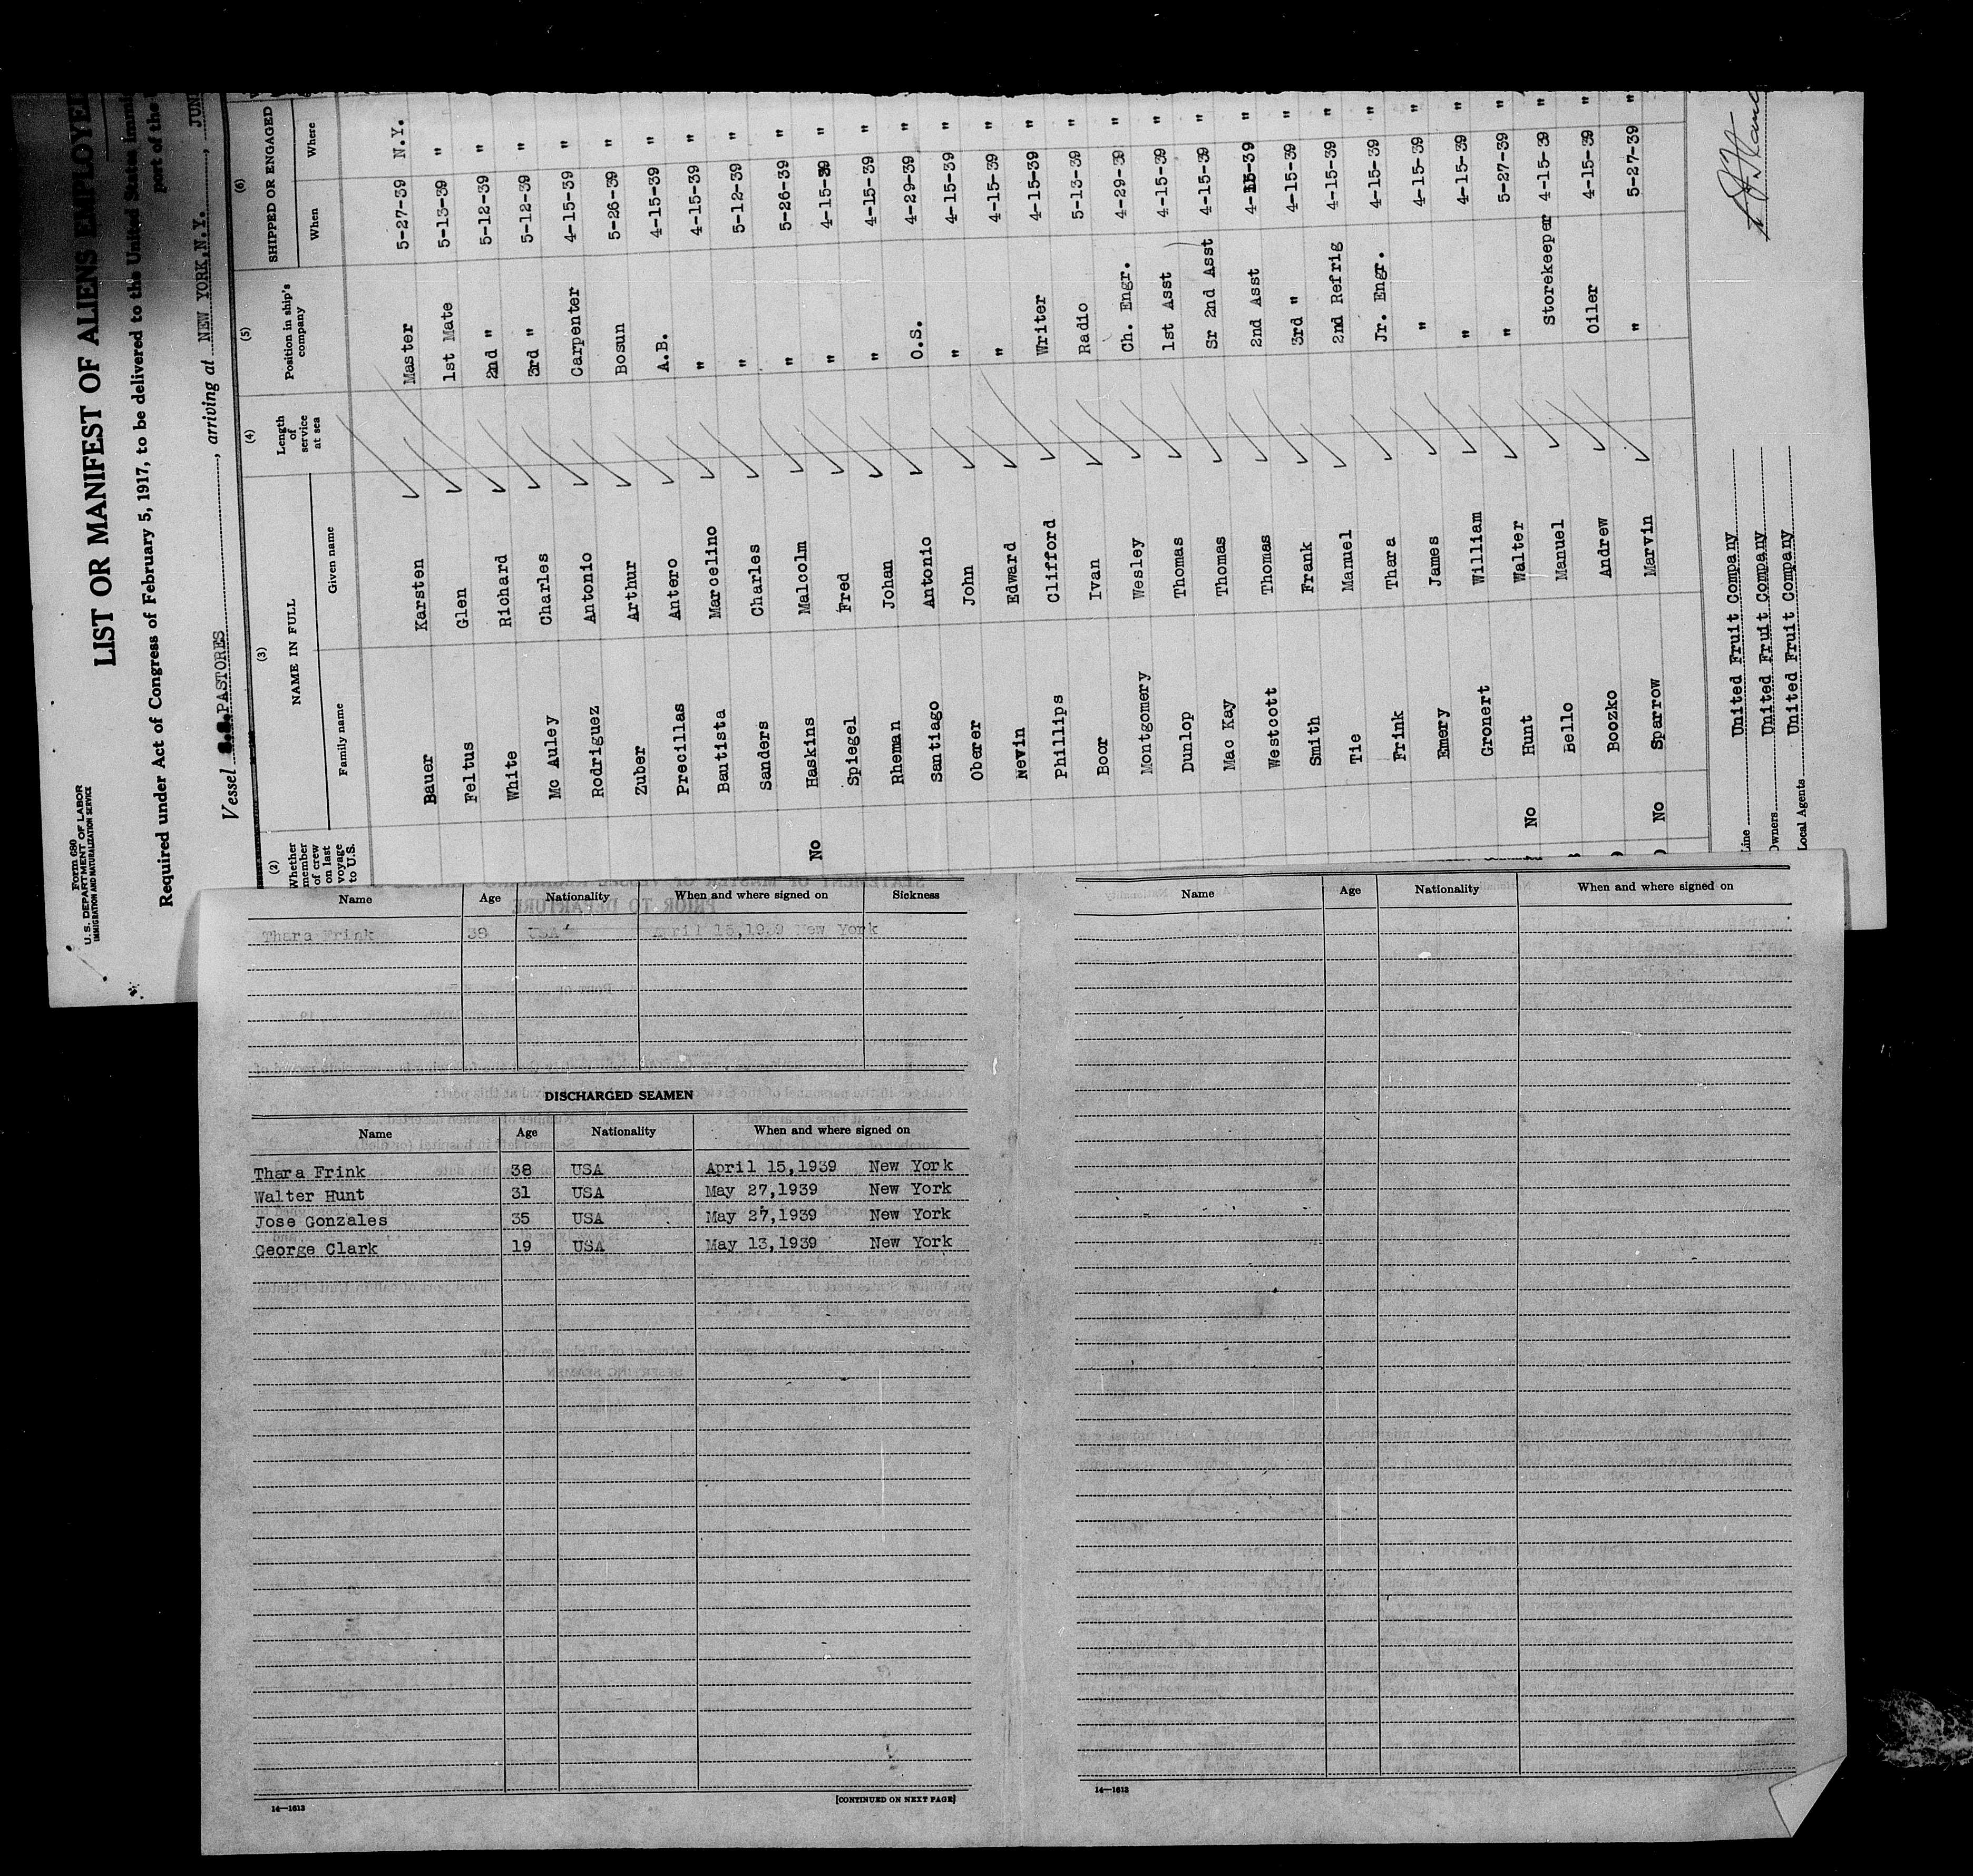 Form 680
U. S. DEPARTMENT OF LABOR
IMMIGRATION AND NATURALIZATION SERVICE
LIST OR MANIFEST OF ALIENS EMPLOYE
Required under Act of Congress of February 5, 1917, to be delivered to the United States immi
part of the
Vessel S.S. PASTORES, arriving at NEW YORK, N.Y., JUN
(2) (3) (4) (5) (6)
Whether member of crew on last voyage to U.S. NAME IN FULL Length of service at sea Position in ship's company SHIPPED OR ENGAGED
Family name Given name When Where
Bauer Karsten Master 5-27-39 N.Y.
Feltus Glen 1st Mate 5-13-39 "
White Richard 2nd " 5-12-39 "
Mc Auley Charles 3rd " 5-12-39 "
Rodriguez Antonio Carpenter 4-15-39 "
Zuber Arthur Bosun 5-26-39 "
Precillas Antero A.B. 4-15-39 "
Bautista Marcelino " 4-15-39 "
Sanders Charles " 5-12-39 "
No Haskins Malcolm " 5-26-39 "
Spiegel Fred " 4-15-39 "
Rheman Johan " 4-15-39 "
Santiago Antonio O.S. 4-29-39 "
Oberer John " 4-15-39 "
Nevin Edward " 4-15-39 "
Phillips Clifford Writer 4-15-39 "
Boor Ivan Radio 5-13-39 "
Montgomery Wesley Ch. Engr. 4-29-39 "
Dunlop Thomas 1st Asst 4-15-39 "
Mac Kay Thomas Sr 2nd Asst 4-15-39 "
Westcott Thomas 2nd Asst 4-15-39 "
Smith Frank 3rd " 4-15-39 "
Tie Manuel 2nd Refrig 4-15-39 "
Frink Thara Jr. Engr. 4-15-39 "
Emery James " 4-15-39 "
Gronert William " 4-15-39 "
No Hunt Walter " 5-27-39 "
Bello Manuel Storekeeper 4-15-39 "
Boozko Andrew Oiler 4-15-39 "
No Sparrow Marvin " 5-27-39 "
Line United Fruit Company
Owners United Fruit Company
Local Agents United Fruit Company
Name Age Nationality When and where signed on Sickness
Thara Frink 38 USA April 15,1939 New York
DISCHARGED SEAMEN
Name Age Nationality When and where signed on
Thara Frink 38 USA April 15,1939 New York
Walter Hunt 31 USA May 27,1939 New York
Jose Gonzales 35 USA May 27,1939 New York
George Clark 19 USA May 13,1939 New York
14—1613
[CONTINUED ON NEXT PAGE]
Name Age Nationality When and where signed on
14—1613